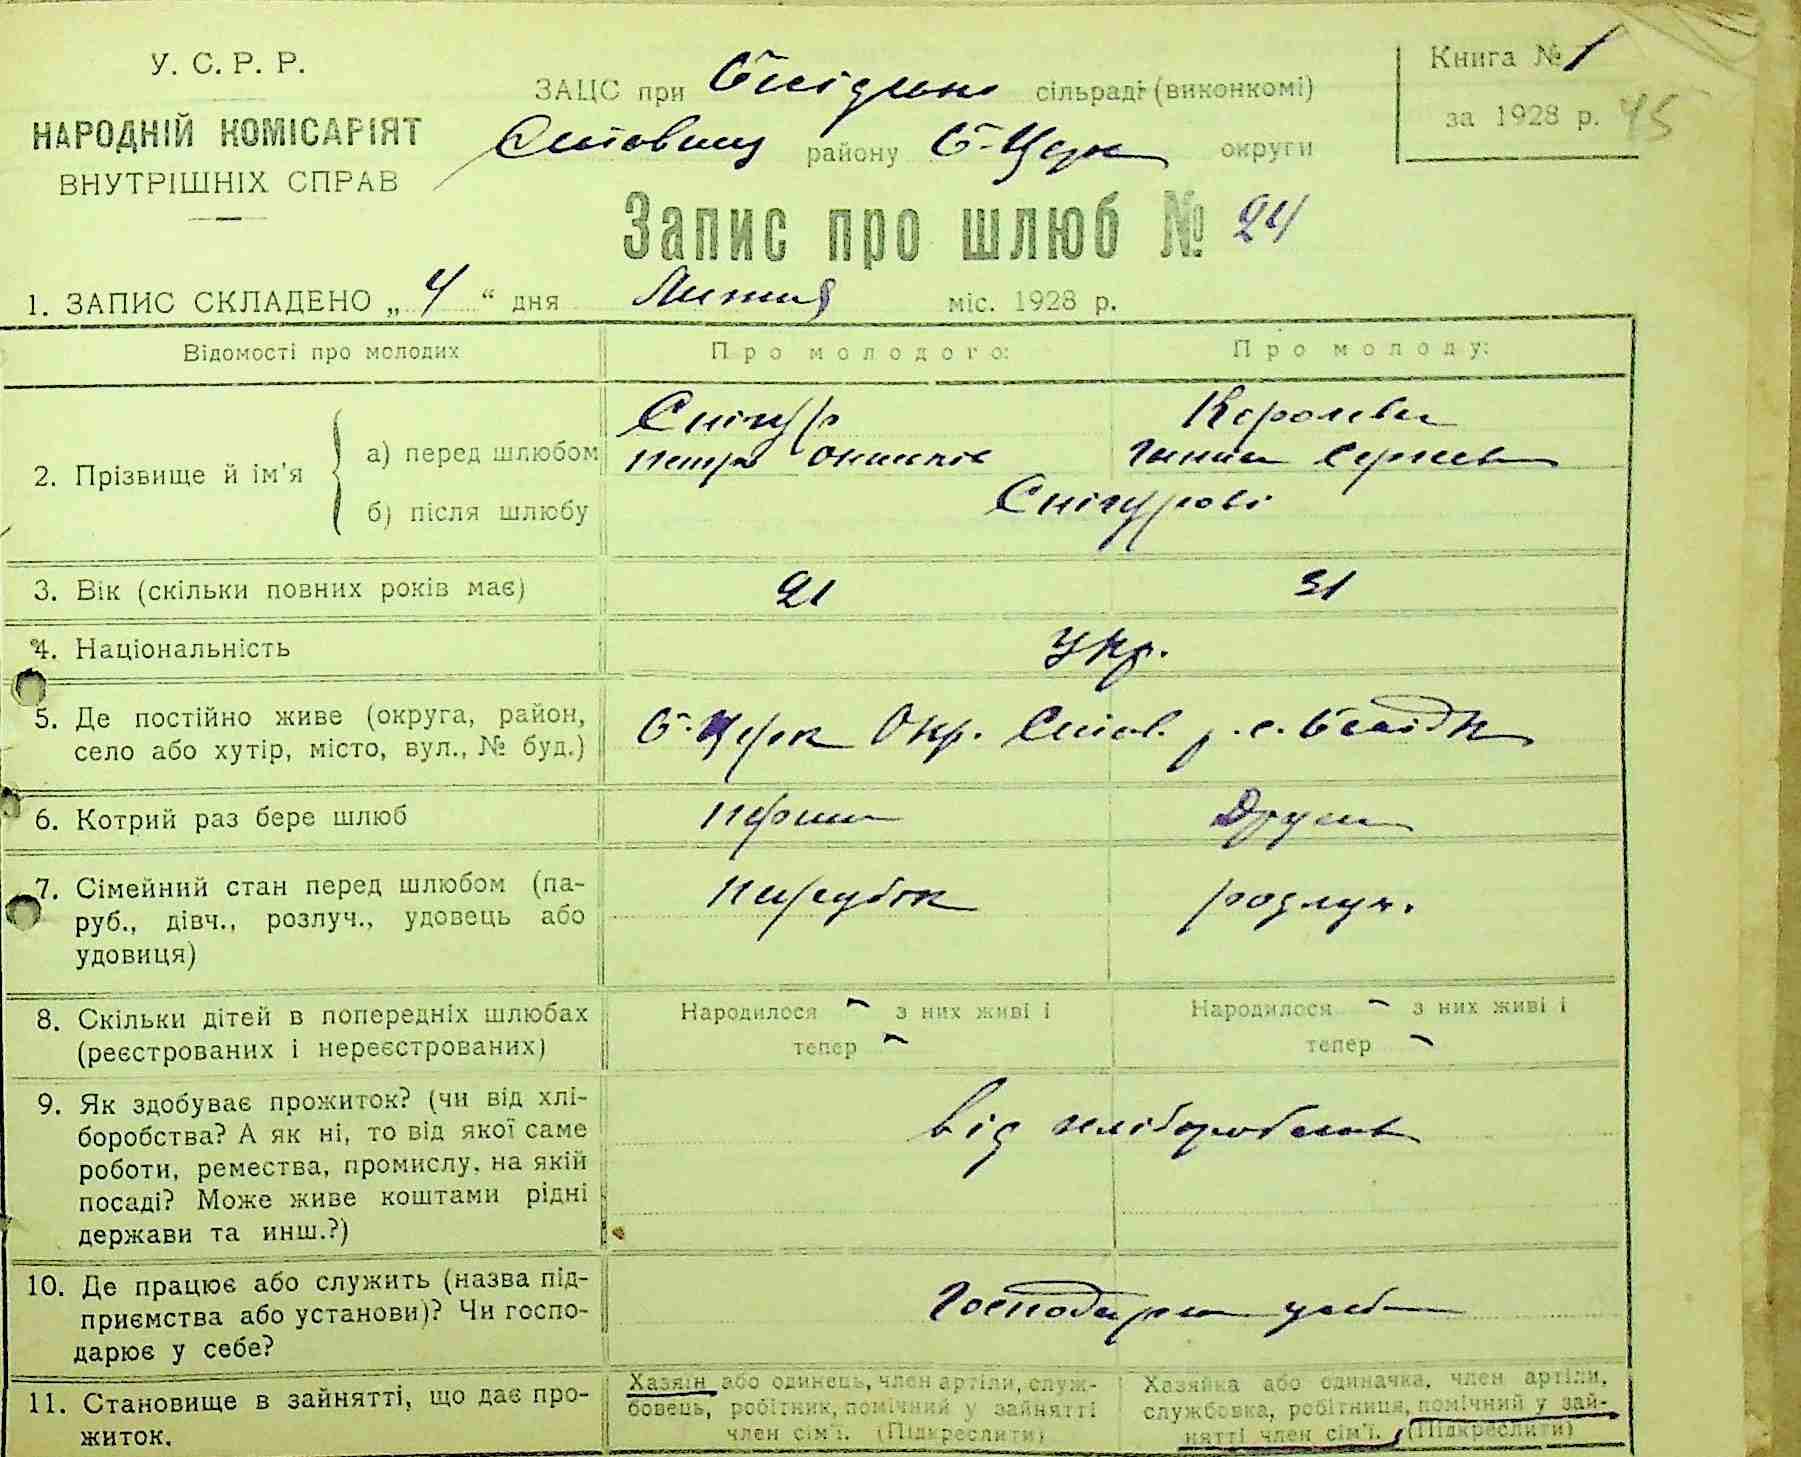 У. С. Р. Р.
НАРОДНІЙ КОМІСАРІЯТ
ВНУТРІШНІХ СПРАВ
ЗАЦС при сільраді (виконкомі)
району Б-Церк округи
Книга № 1
за 1928 р. 45
Запис про шлюб № 24
1. ЗАПИС СКЛАДЕНО „ 4 “ дня міс. 1928 р.
Відомості про молодих Про молодого: Про молоду:
2. Прізвище й ім'я
а) перед шлюбом
Снігур Королева
Петро Ганна
б) після шлюбу Снігурові
3. Вік (скільки повних років має) 21 31
4. Національність Укр.
5. Де постійно живе (округа, район,
село або хутір, місто, вул., № буд.)
Б-Церк Окр. р. с.
6. Котрий раз бере шлюб Перши Други
7. Сімейний стан перед шлюбом (па-
руб., дівч., розлуч., удовець або
удовиця)
Парубок розлуч.
8. Скільки дітей в попередніх шлюбах
(реєстрованих і нереєстрованих)
Народилося - з них живі і
тепер -
Народилося - з них живі і
тепер -
9. Як здобуває прожиток? (чи від хлі-
боробства? А як ні, то від якої саме
роботи, ремества, промислу, на якій
посаді? Може живе коштами рідні
держави та инш.?)
від хліборобства
10. Де працює або служить (назва під-
приємства або установи)? Чи госпо-
дарює у себе?
11. Становище в зайнятті, що дає про-
житок.
Хазяїн або одинець, член артіли, служ-
бовець, робітник, помічний у зайнятті
член сім'ї. (Підкреслити)
Хазяйка або одиначка, член артіли,
службовка, робітниця, помічний у зай-
нятті член сім'ї. (Підкреслити)